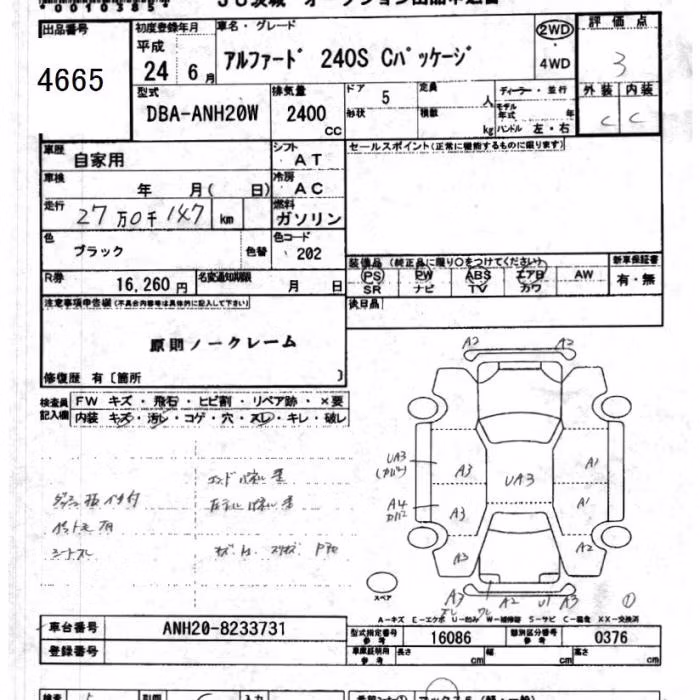 出品番号
4665
初度登録年月
平成
24 6月
車名・グレード
アルファード 240S Cパッケージ
2WD
4WD
評価点
3
外装 内装
C C
型式
DBA-ANH20W
排気量
2400
CC
ドア 5
形状
定員
人
積載
kg
ディーラー・並行
モデル
年式 年
ハンドル 左・右
車歴
自家用
シフト
AT
車検
年 月( 日)
冷房
AC
走行
27万0千147 km
燃料
ガソリン
色
ブラック
色替
色コード
202
R券
16,260円
名変通知期限
月 日
セールスポイント(正常に機能するものに限ります)
装備品(純正品に限り○をつけてください)
新車保証書
PS PW ABS エアB AW
SR ナビ TV カワ
有・無
後日品
注意事項申告欄(不具合内容等は具体的に記入して下さい)
原則ノークレーム
修復歴 有〔箇所 〕
検査員
記入欄
FW キズ・飛石・ヒビ割・リペア跡・×要
内装 キズ・汚レ・コゲ・穴・スレ・キレ・破レ
シートスレ
A2 A2
UA3
A3
UA3
A1
A4
A3
A1
A3
A2
A3 A2 U1 A3
スペア
①
A-キズ E-エクボ U-凹み W-補修跡 S-サビ C-腐食 XX-交換済
車台番号
ANH20-8233731
登録番号
型式指定番号
参考
16086
類別区分番号
参考
0376
車庫証明用
参考
長さ cm
幅 cm
高さ cm